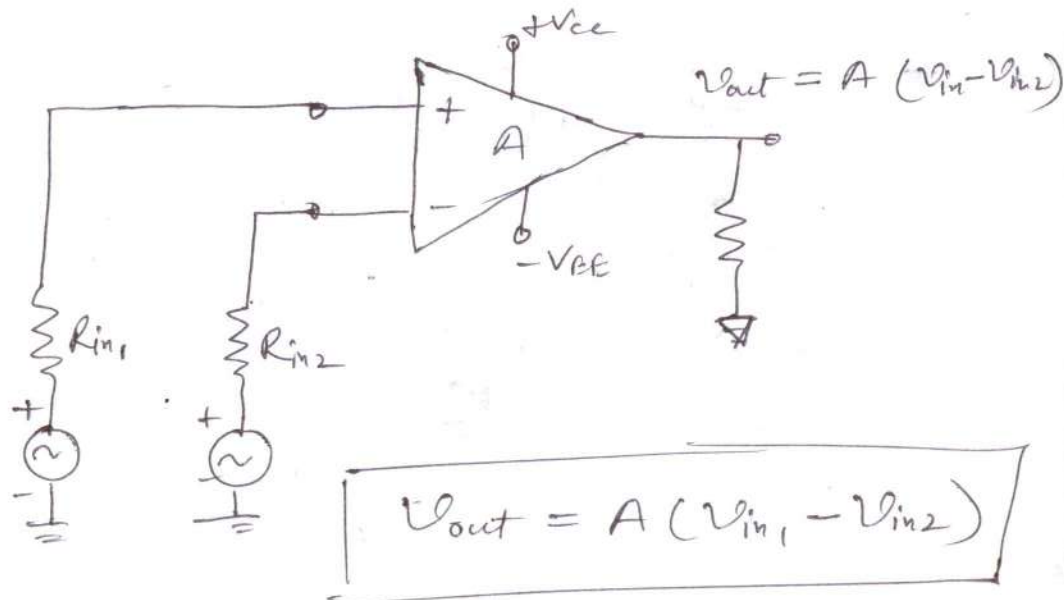 +Vcc
vout = A (vin-vin2)
+
A
-
-VEE
Rin1
Rin2
+
-
+
-
vout = A (vin1 - vin2)